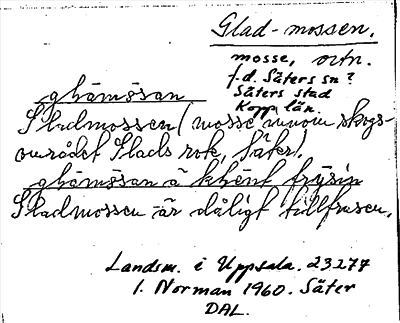 Glad-mossen.
mosse, ortn.
f.d. Säters sn?
Säters stad
Kopp. län.
ghämåsan
Gladmossen (mosse inom skogs-
området Glads rote, Säter).
ghämåsan ä khent frỳsin
Gladmossen är dåligt tillfrusen.
Landsm. i Uppsala. 23277
I. Norman 1960. Säter
DAL.